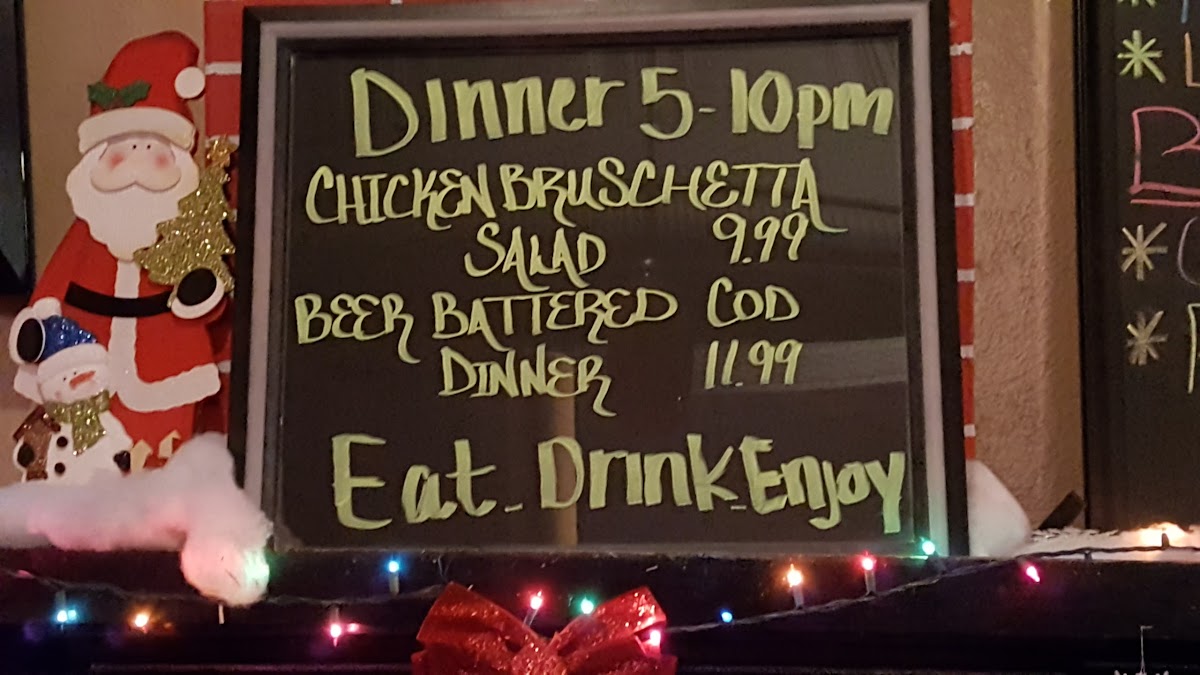 Dinner 5-10pm
CHICKEN BRUSCHETTA
SALAD 9.99
BEER BATTERED COD
DINNER 11.99
Eat-Drink-Enjoy